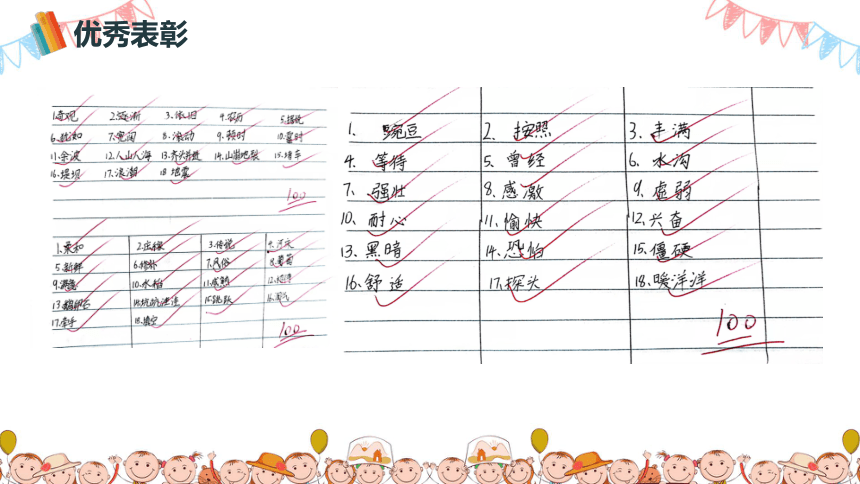 优秀表彰
1.奇观 2.逐渐 3.依旧 4.农历 5.据说
6.犹如 7.宽阔 8.滚动 9.顿时 10.霎时
11.余波 12.人山人海 13.齐头并进 14.山崩地裂 15.堵车
16.堤坝 17.浪潮 18.地震
100
1.柔和 3.传说
5.新鲜 6.修补 7.风俗 8.葡萄
10.水稻 11.成熟 12.
15.跳跃
17.牵手 18.
100
1. 豌豆 2. 按照 3. 丰满
4. 等待 5. 曾经 6. 水沟
7. 强壮 8.感激 9. 虚弱
10. 耐心 11.愉快 12.兴奋
13.黑暗 14.恐怕 15.僵硬
16.舒适 17.探头 18.暖洋洋
100